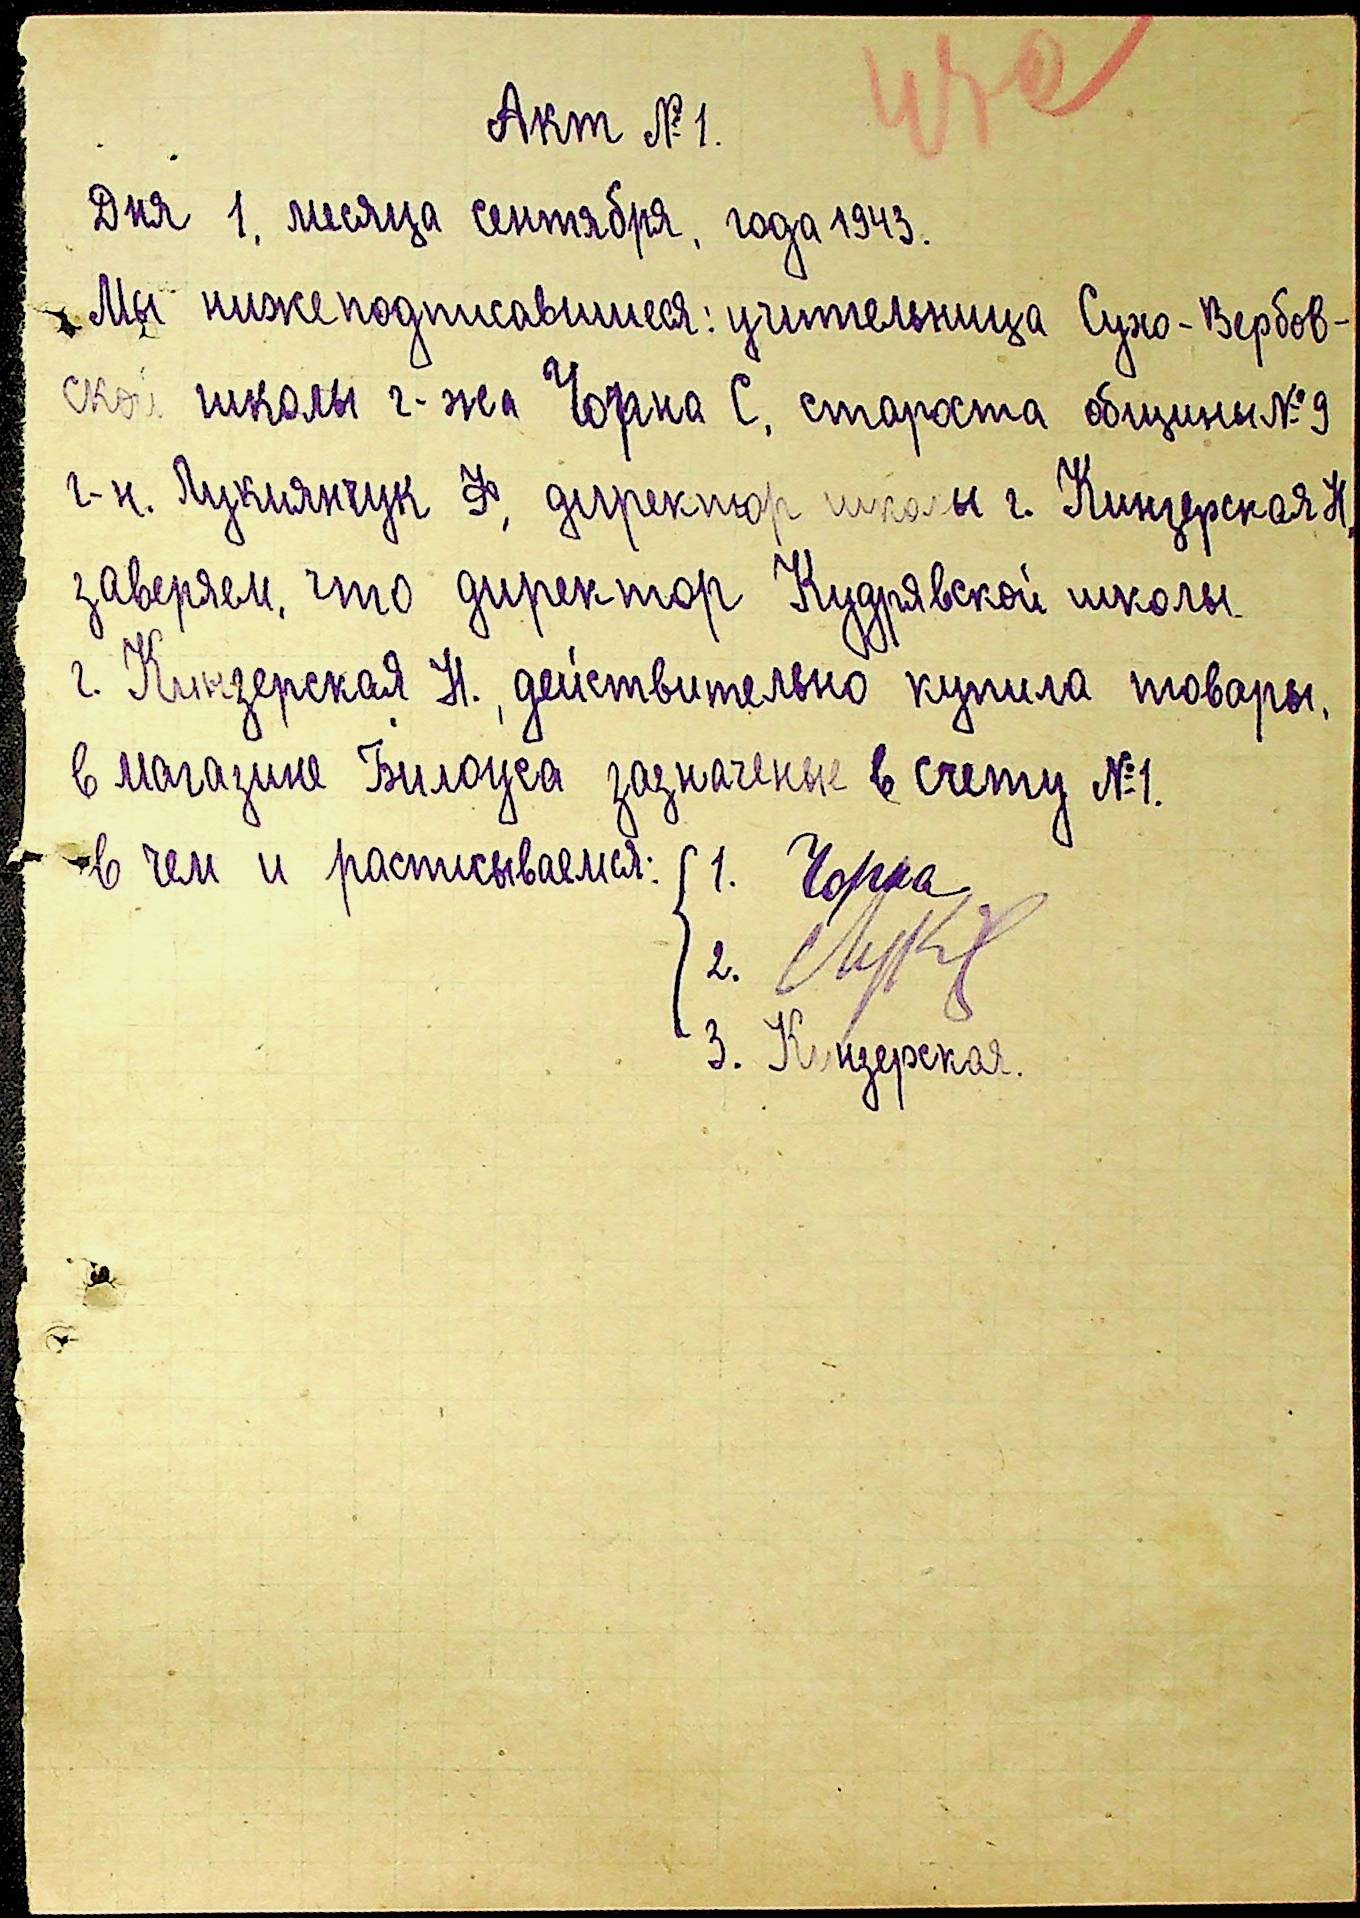 Акт № 1.
Дня 1, месяца сентября, года 1943.
Мы нижеподписавшиеся: учительница Сухо-Вербов-
ской школы г-жа Чорна С, староста общины № 9
г-н. Лукиянчук Ф, директор школы г. Кинзерская Н,
заверяем, что директор Кудрявской школы
г. Кинзерская Н., действительно купила товары,
в магазине Билоуса зазначеные в счету № 1.
в чем и расписываемся: 1. Чорна
2.
3. Кинзерская.